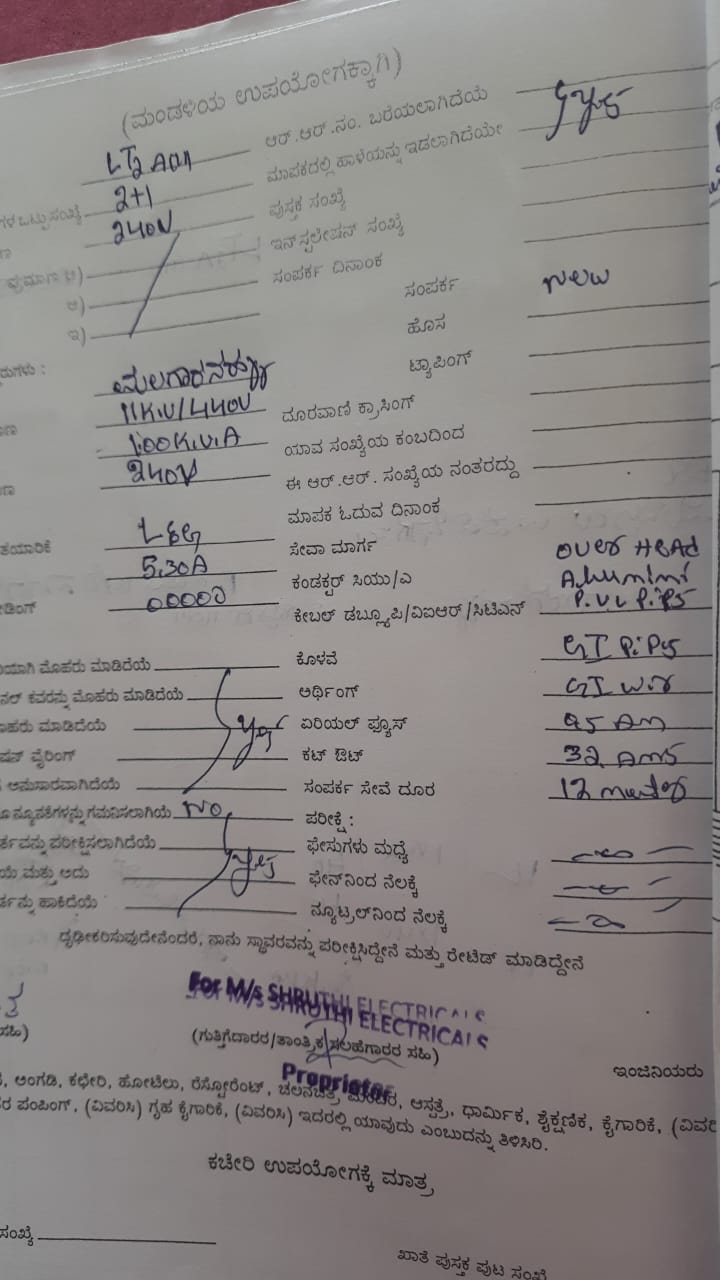 (ಮಂಡಳಿಯ ಉಪಯೋಗಕ್ಕಾಗಿ)
LT2 ಆರ್.ಆರ್.ನಂ. ಬರೆಯಲಾಗಿದೆಯೆ
ಗಳ ಒಟ್ಟು ಸಂಖ್ಯೆ 2+1 ಮಾಪಕದಲ್ಲಿ ಹಾಳೆಯನ್ನು ಇಡಲಾಗಿದೆಯೇ yes
240V ಪುಸ್ತಕ ಸಂಖ್ಯೆ
ಪ್ರಮಾಣ ಅ) ಇನ್‌ಸ್ಟಲೇಷನ್ ಸಂಖ್ಯೆ
ಆ) ಸಂಪರ್ಕ ದಿನಾಂಕ
ಇ) ಸಂಪರ್ಕ New
ಹೊಸ
ಟ್ಯಾಪಿಂಗ್
11K.V/440V ದೂರವಾಣಿ ಕ್ರಾಸಿಂಗ್
100K.V.A ಯಾವ ಸಂಖ್ಯೆಯ ಕಂಬದಿಂದ
240V ಈ ಆರ್.ಆರ್. ಸಂಖ್ಯೆಯ ನಂತರದ್ದು
ಮಾಪಕ ಓದುವ ದಿನಾಂಕ
ತಯಾರಿಕೆ L&G ಸೇವಾ ಮಾರ್ಗ Over Head
5.30A ಕಂಡಕ್ಟರ್ ಸಿಯು/ಎ
ಡಿಂಗ್ 00000 ಕೇಬಲ್ ಡಬ್ಲ್ಯೂಪಿ/ವಿಐಆರ್/ಸಿಟಿಎಸ್ P.V.C Pipe
ಯಾಗಿ ಮೊಹರು ಮಾಡಿದೆಯೆ ಕೊಳವೆ GI Pipe
ನಲ್ ಕವರನ್ನು ಮೊಹರು ಮಾಡಿದೆಯೆ ಅರ್ಥಿಂಗ್ GI
ಹರು ಮಾಡಿದೆಯೆ yes ಏರಿಯಲ್ ಫ್ಯೂಸ್
ಷನ್ ವೈರಿಂಗ್ ಕಟ್ ಔಟ್ 32 Ams
ಅನುಸಾರವಾಗಿದೆಯೆ ಸಂಪರ್ಕ ಸೇವೆ ದೂರ 12
ನ್ಯೂನತೆಗಳನ್ನು ಗಮನಿಸಲಾಗಿಯೆ No ಪರೀಕ್ಷೆ :
ರ್ತವನ್ನು ಪರೀಕ್ಷಿಸಲಾಗಿದೆಯೆ ಫೇಸುಗಳು ಮಧ್ಯೆ
ಯೆ ಮತ್ತು ಅದು yes ಫೇಸ್‌ನಿಂದ ನೆಲಕ್ಕೆ
ಹಾಕಿದೆಯೆ ನ್ಯೂಟ್ರಲ್‌ನಿಂದ ನೆಲಕ್ಕೆ
ದೃಢೀಕರಿಸುವುದೇನೆಂದರೆ, ನಾನು ಸ್ಥಾವರವನ್ನು ಪರೀಕ್ಷಿಸಿದ್ದೇನೆ ಮತ್ತು ರೇಟಿಡ್ ಮಾಡಿದ್ದೇನೆ
For M/s SHRUTHI ELECTRICALS
ಸಹಿ) (ಗುತ್ತಿಗೆದಾರರ/ತಾಂತ್ರಿಕ ಸಲಹೆಗಾರರ ಸಹಿ) ಇಂಜಿನಿಯರು
Proprietor
ಅಂಗಡಿ, ಕಛೇರಿ, ಹೋಟೆಲು, ರೆಸ್ಟೋರೆಂಟ್, ಚಲನಚಿತ್ರ ಮಂದಿರ, ಆಸ್ಪತ್ರೆ, ಧಾರ್ಮಿಕ, ಶೈಕ್ಷಣಿಕ, ಕೈಗಾರಿಕೆ, (ವಿವರಿ
ರ ಪಂಪಿಂಗ್, (ವಿವರಿಸಿ) ಗೃಹ ಕೈಗಾರಿಕೆ, (ವಿವರಿಸಿ) ಇದರಲ್ಲಿ ಯಾವುದು ಎಂಬುದನ್ನು ತಿಳಿಸಿರಿ.
ಕಚೇರಿ ಉಪಯೋಗಕ್ಕೆ ಮಾತ್ರ
ಸಂಖ್ಯೆ
ಖಾತೆ ಪುಸ್ತಕ ಪುಟ ಸಂಖ್ಯೆ